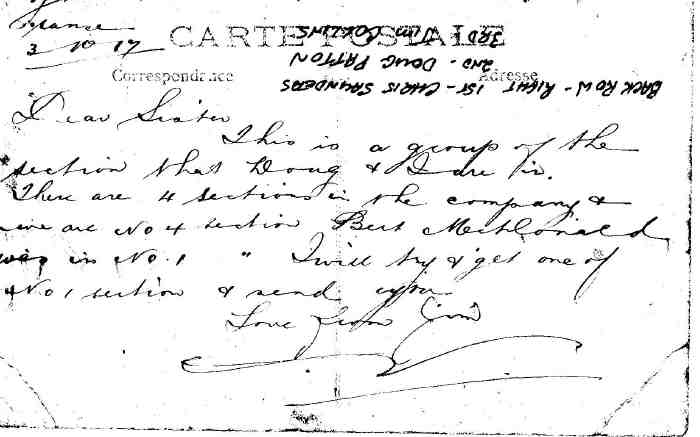 France
3 10 17
CARTE POSTALE
Correspondance
Adresse
BACK ROW - RIGHT 1ST - CHRIS SAUNDERS
2ND - DOUG PATTON
3RD - JIM COLLINS
Dear Sister
This is a group of the
section that Doug & I are in.
There are 4 sections in the company &
we are No 4 section Bert McDonald
was in No. 1 " I will try & get one of
No 1 section & send you
Love from Jim